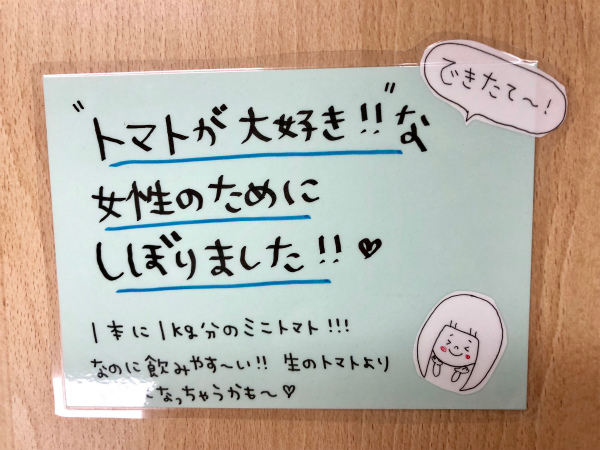 できたて〜!
"トマトが大好き!!"な
女性のために
しぼりました!!♥
1本に1kg分のミニトマト!!!
なのに飲みやす〜い!! 生のトマトより
なっちゃうかも〜♡